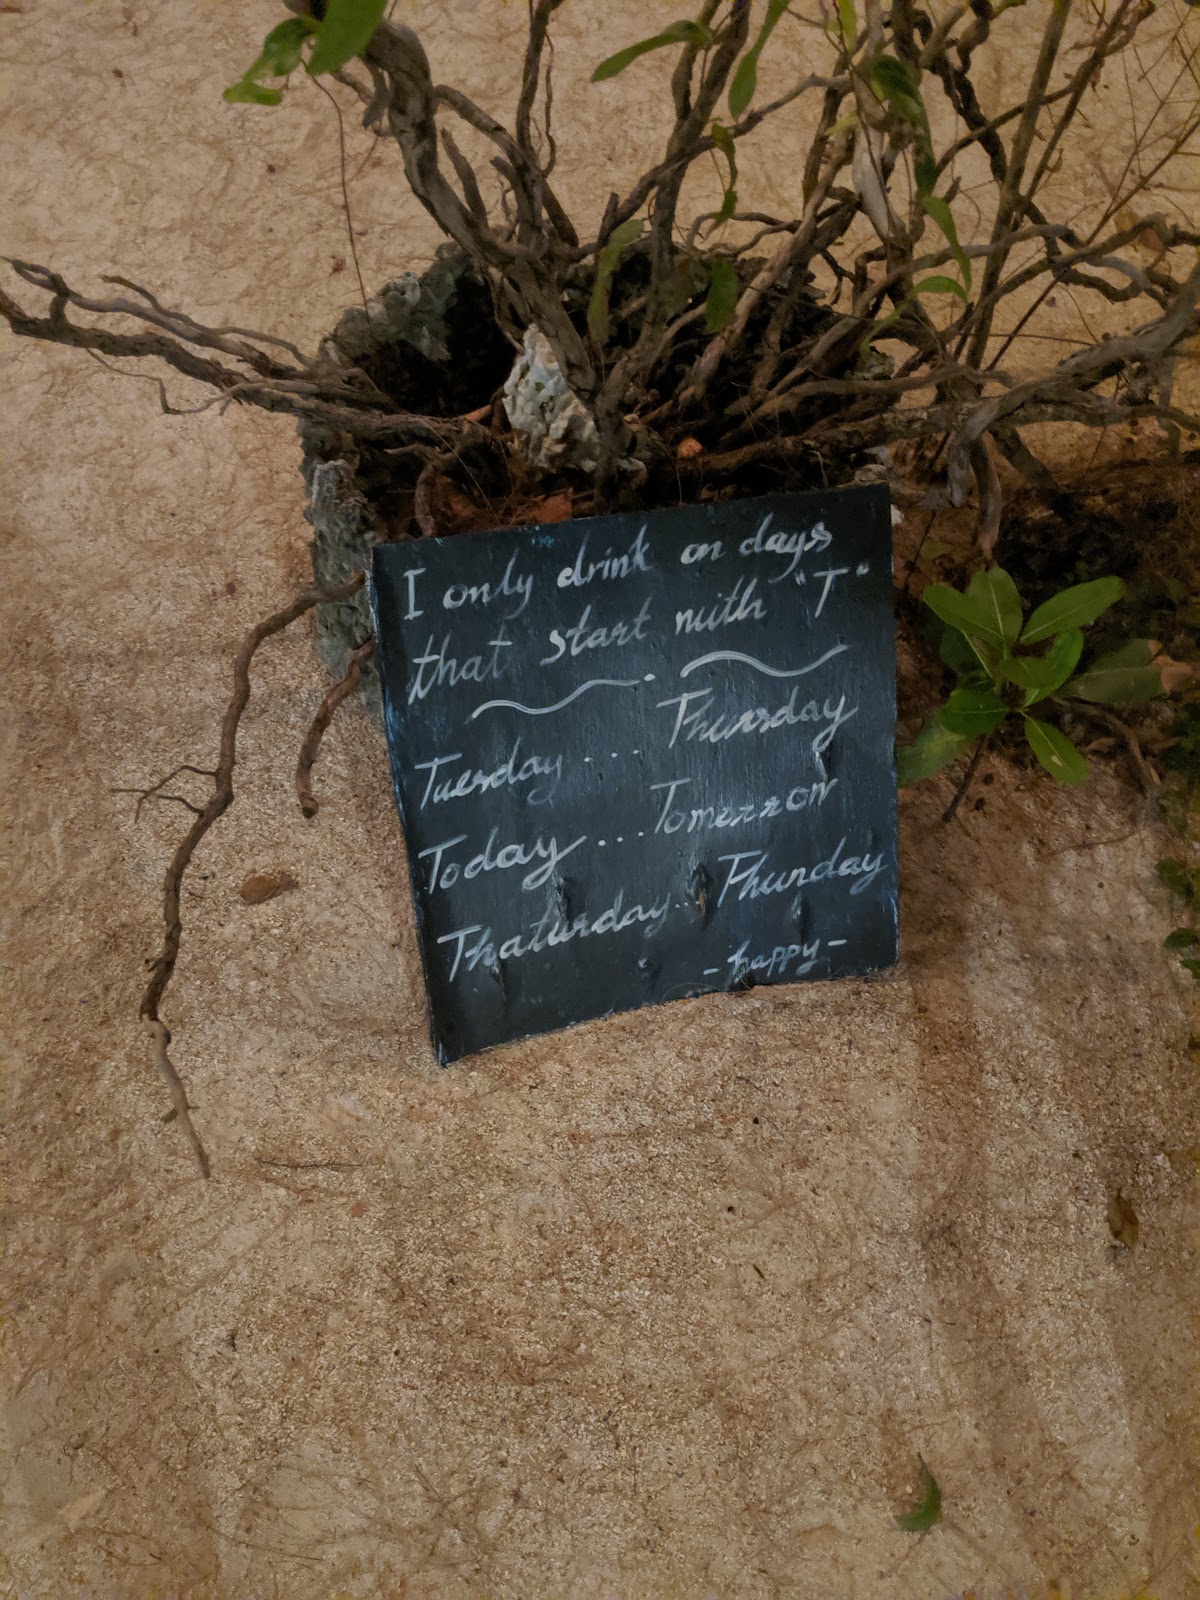 I only drink on days
that start with "T"
Tuesday ... Thursday
Today .... Tomorrow
Thaturday.. Thunday
- happy -